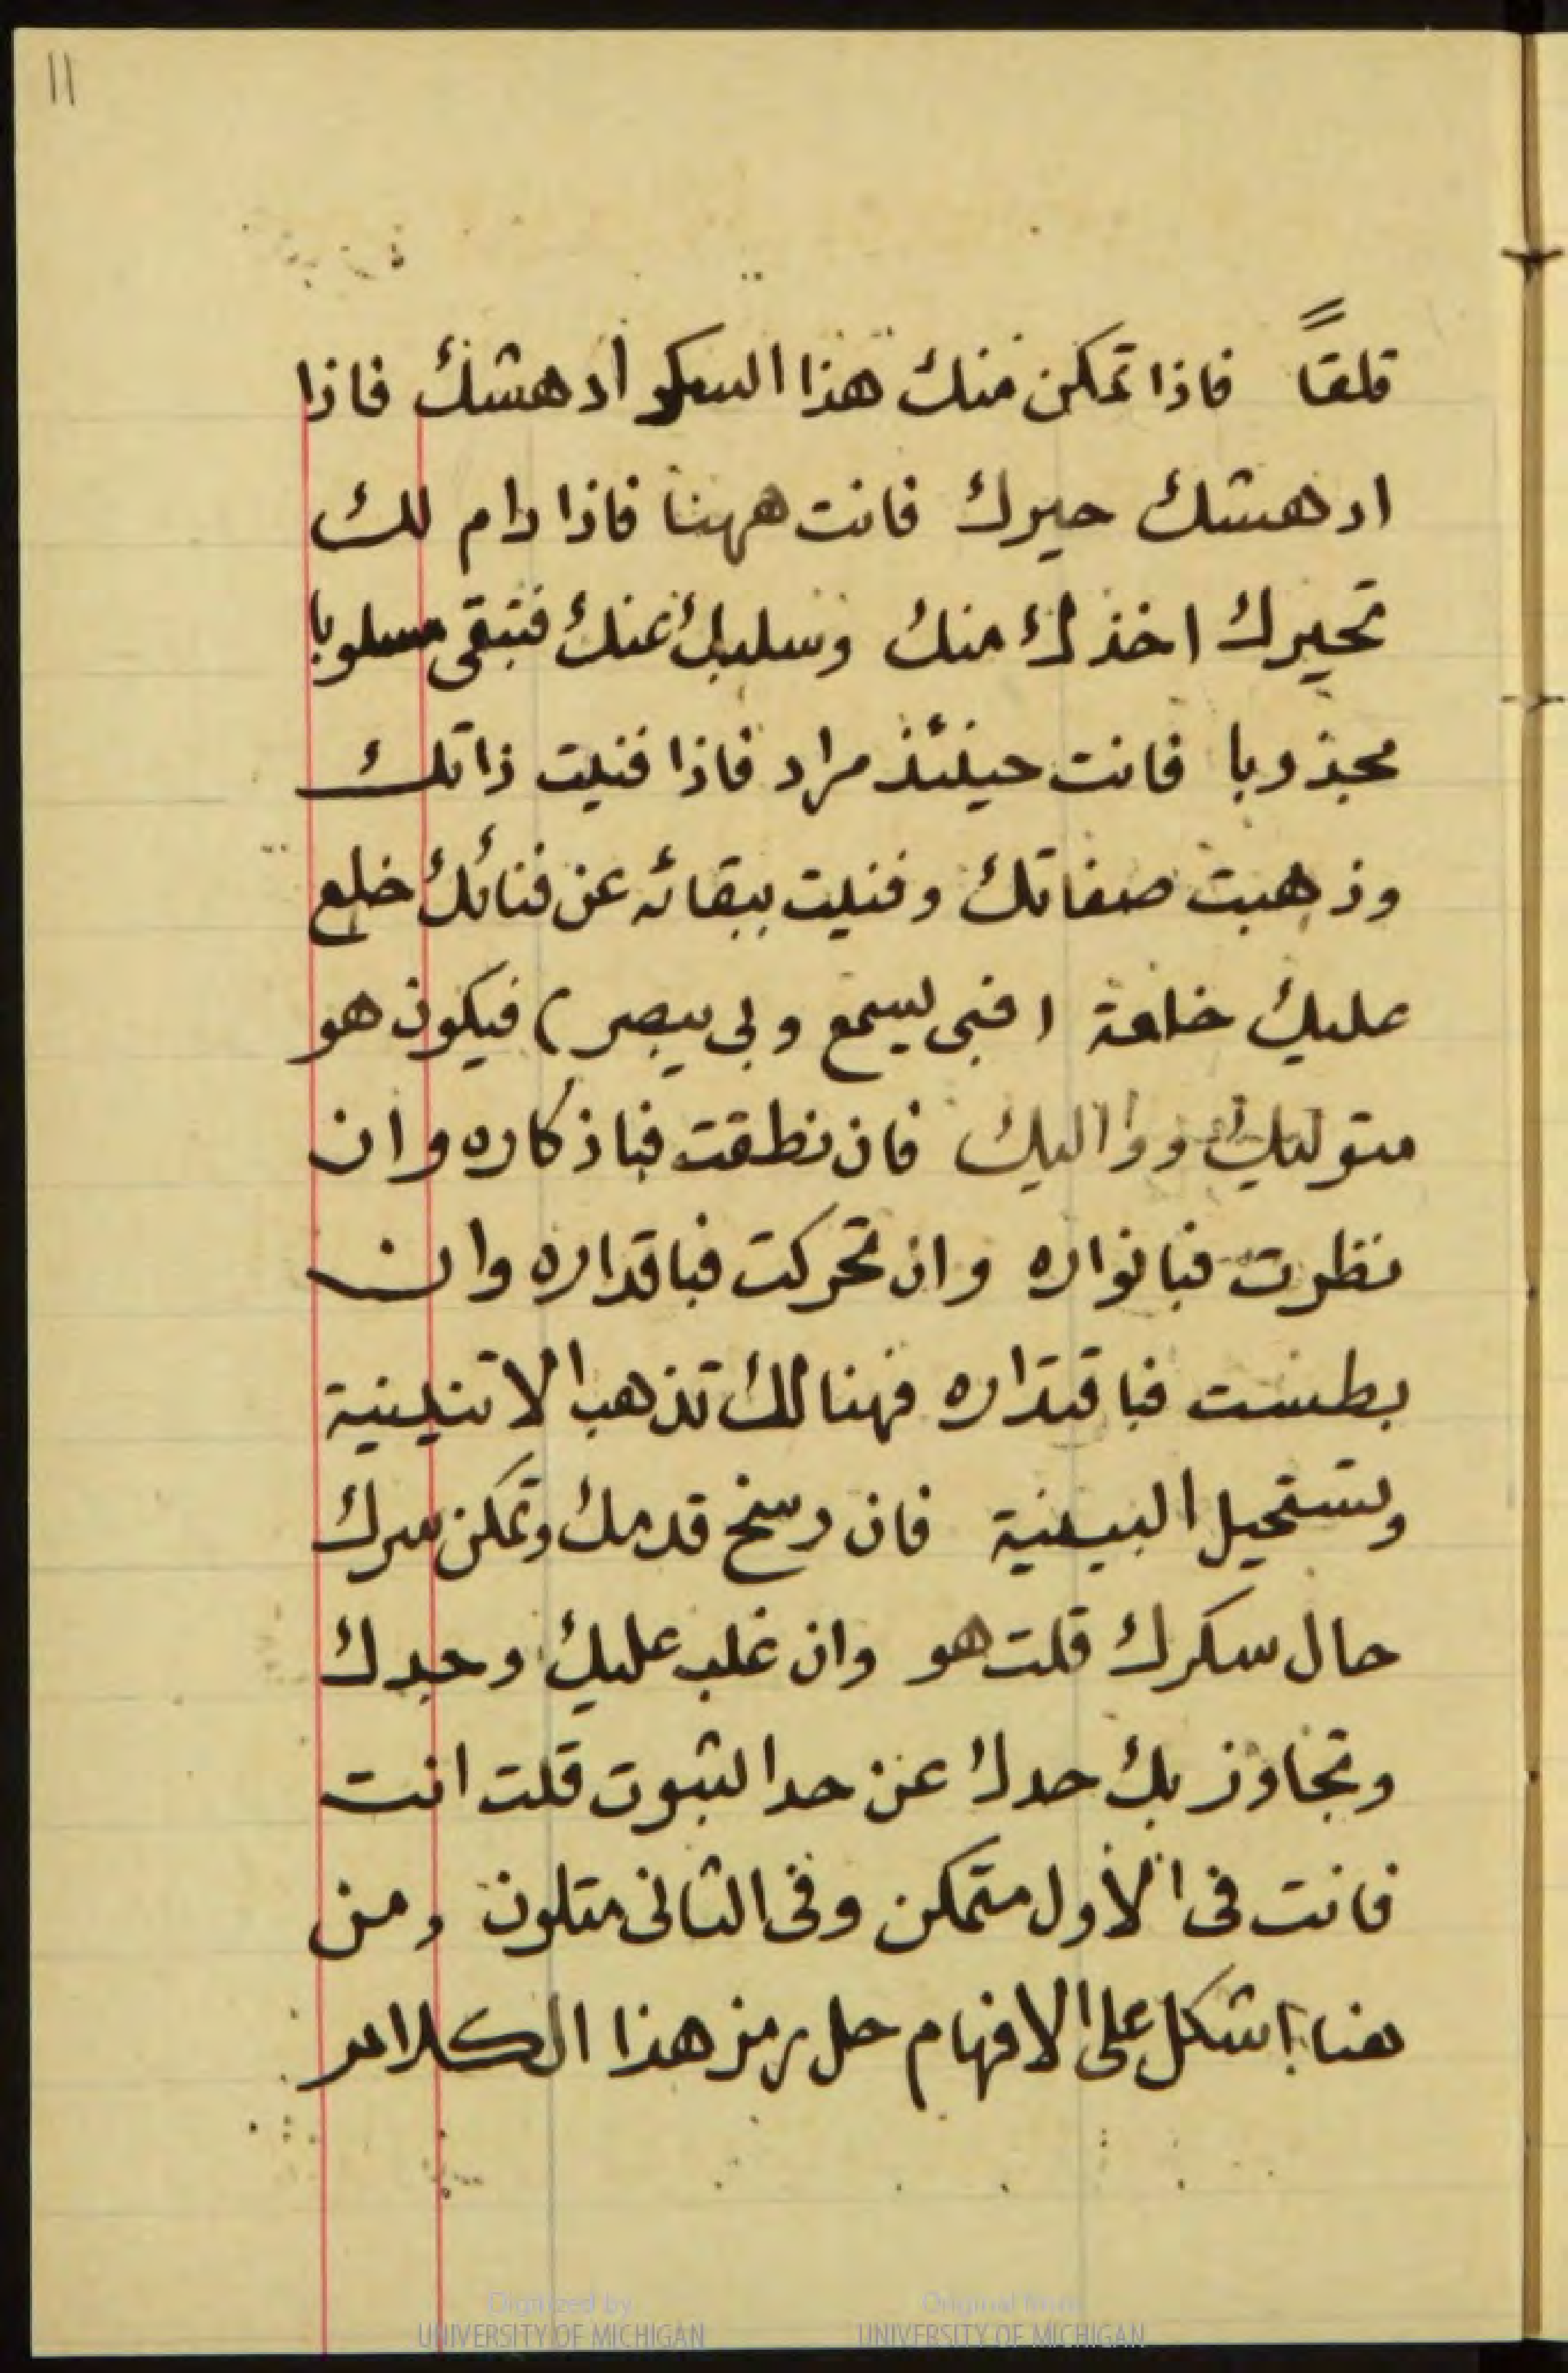 11
قلقاً فاذا تمكن منك هذا السكر ادهشك فاذا
ادهشك حيرك فانت ههنا فاذا دام لك
تحيرك اخذك منك وسلبك عنك فتبقى مسلوبا
مجذوبا فانت حينئذ مراد فاذا فنيت ذاتك
وذهبت صفاتك وفنيت ببقائه عن فنائك خلع
عليك خلعة (فبى يسمع وبى يبصر) فيكون هو
متوليك وواليك فان نطقت فباذكاره وان
نظرت فبانواره وان تحركت فباقداره وان
بطشت فباقتداره فهنالك تذهب الاثنينية
وتستحيل البينية فان رسخ قدمك وتمكن سرك
حال سكرك قلت هو وان غلب عليك وجدك
وتجاوز بك حدك عن حد الثبوت قلت انت
فانت فى الأول متمكن وفى الثانى متلون ومن
هنا اشكل على الافهام حل رمز هذا الكلام
Digitized by
UNIVERSITY OF MICHIGAN
Original from
UNIVERSITY OF MICHIGAN